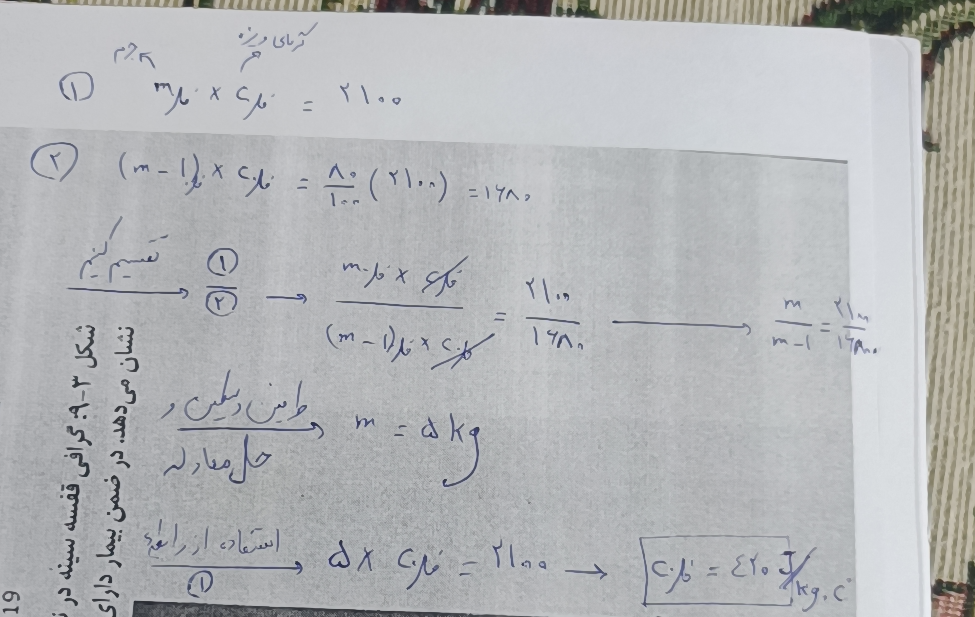 گرمای ویژه
جرم
① m فلز × c فلز = ۲۱۰۰
② (m - 1) فلز × c فلز = ۸۰/۱۰۰ (۲۱۰۰) = ۱۶۸۰
تقسیم کنیم → ①/② → m فلز × c فلز / (m - 1) فلز × c فلز = ۲۱۰۰/۱۶۸۰ → m/m-1 = ۲۱۰۰/۱۶۸۰
طرفین وسطین و حل معادله → m = ۵ kg
استفاده از رابطه ① → ۵ × c فلز = ۲۱۰۰ → c فلز = ۴۲۰ J/kg.c°
شکل ۳-۹: گرافی قفسه سینه در
نشان می‌دهد. در ضمن بیمار دارای
19